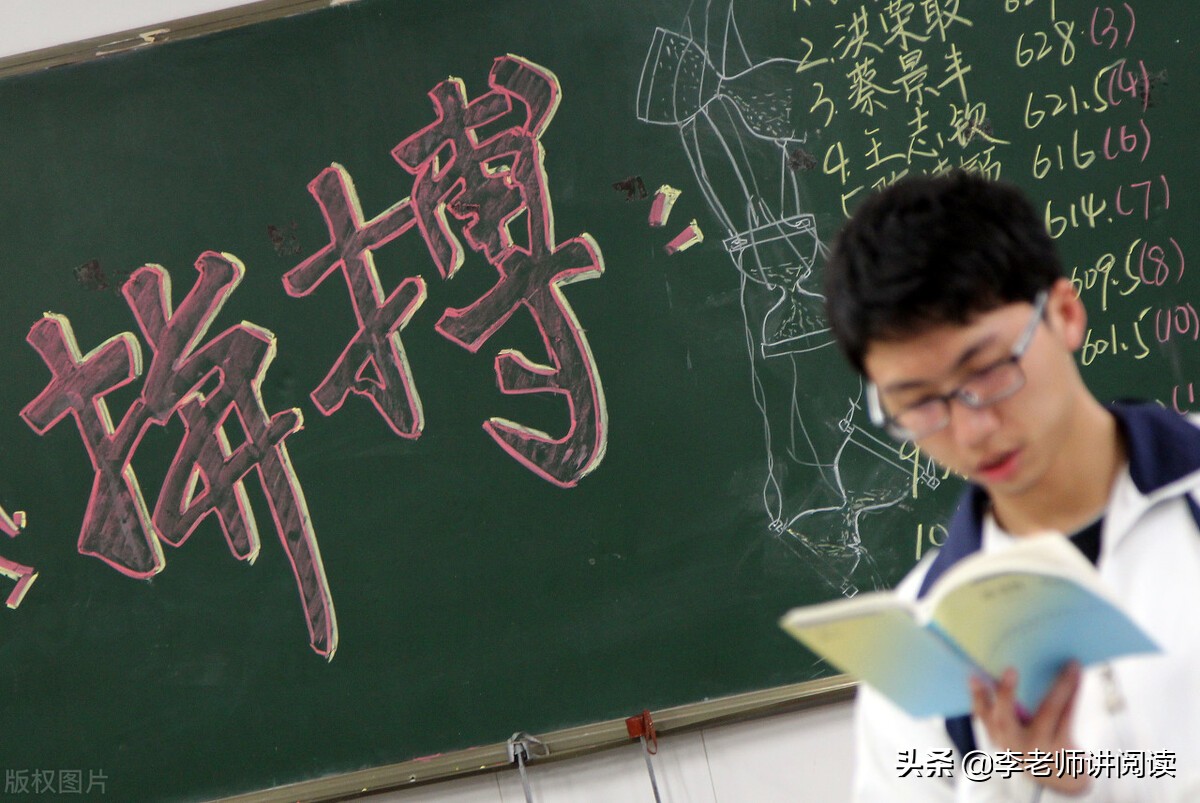 拼搏
2.洪荣取
3.蔡景丰 628.(3)
4.王志钦 621.5(4)
616(6)
614.(7)
609.5(8)
601.5(10)
9
10
版权图片
头条 @李老师讲阅读